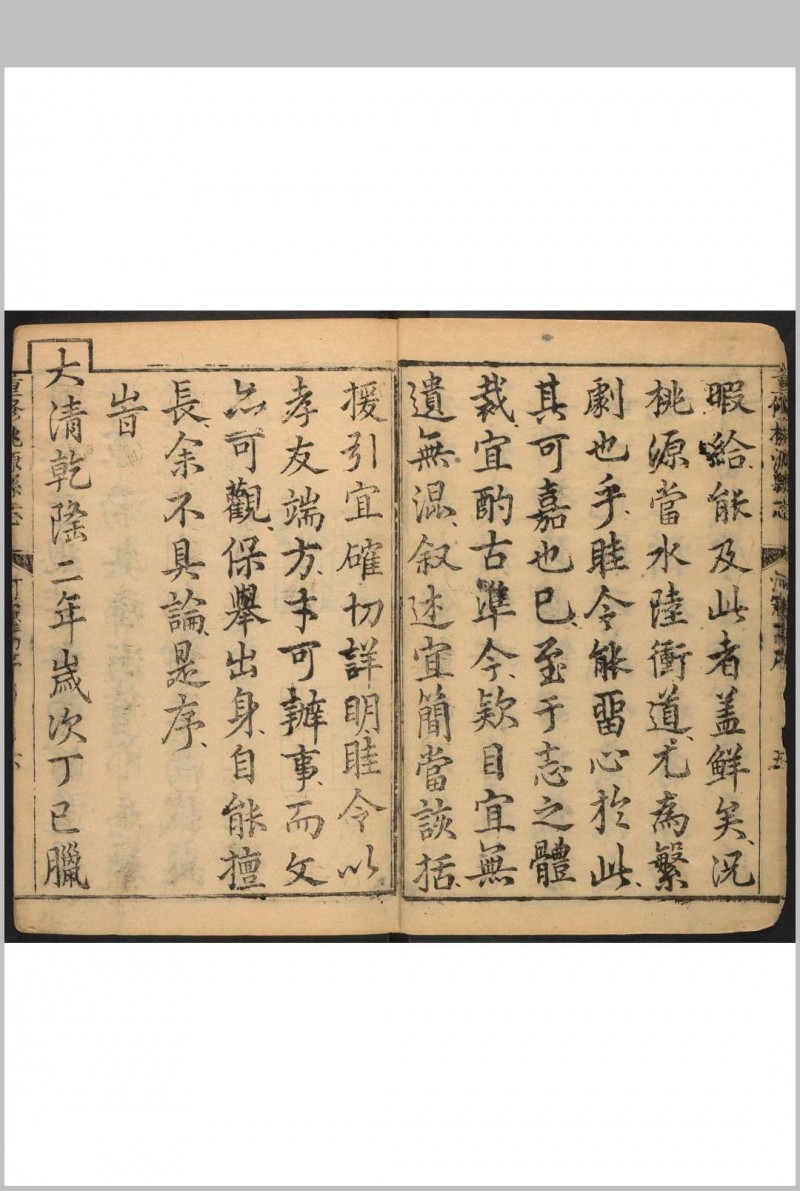 重修桃源縣志
五
暇給能及此者盖鮮矣况
桃源當水陸衝道尤為繁
劇也乎眭令能畱心於此
其可嘉也已至于志之體
裁宜酌古準今欵目宜無
遺無混叙述宜簡當該括
援引宜確切詳明眭令以
孝友端方才可辦事而文
亦可觀保舉出身自能擅
長余不具論是序
旹
大清乾隆二年歲次丁巳臘
重修桃源縣志
六